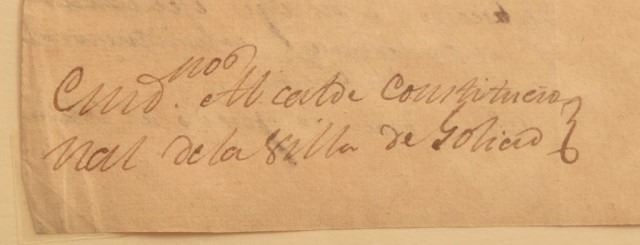 Ciud.no Alcalde Constitucio
nal de la Villa de Goliad